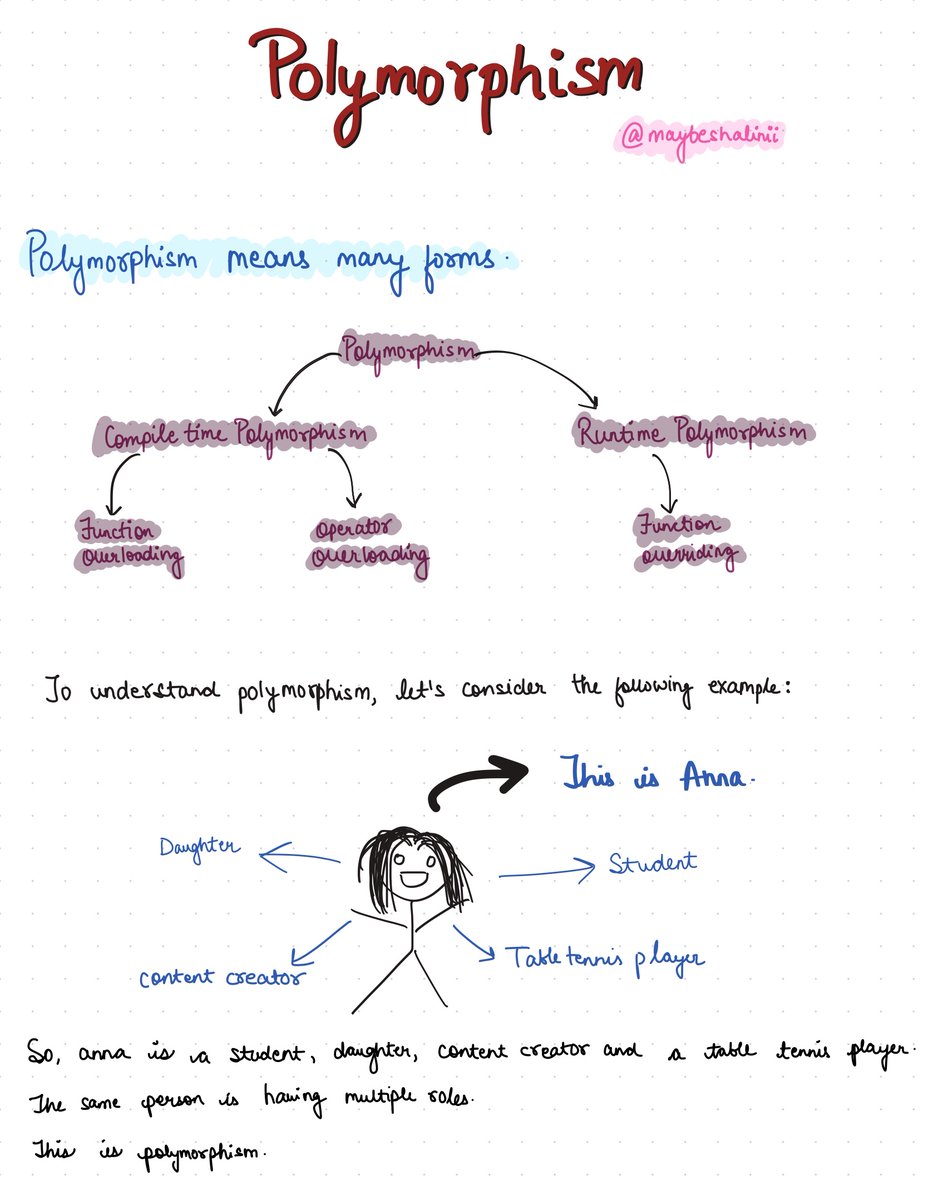 Polymorphism
@maybeshalinii
Polymorphism means many forms.
Polymorphism
Compile time Polymorphism
Runtime Polymorphism
Function
overloading
Operator
overloading
Function
overriding
To understand polymorphism, let's consider the following example:
This is Anna.
Daughter
Student
content creator
Table tennis player
So, anna is a student, daughter, content creator and a table tennis player.
The same person is having multiple roles.
This is polymorphism.